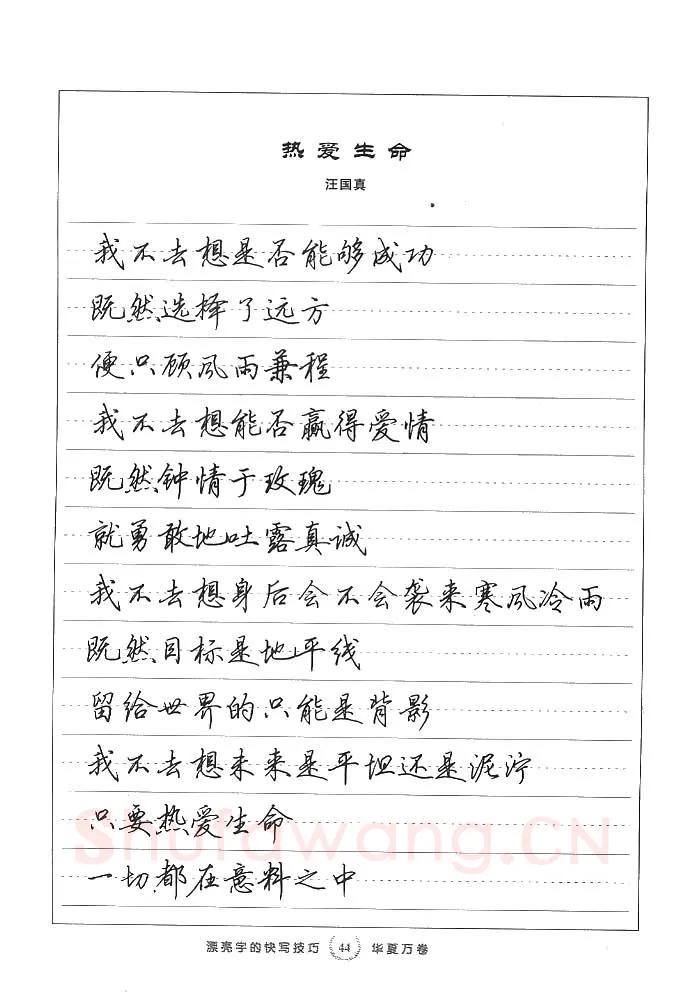 热爱生命
汪国真
我不去想是否能够成功
既然选择了远方
便只顾风雨兼程
我不去想能否赢得爱情
既然钟情于玫瑰
就勇敢地吐露真诚
我不去想身后会不会袭来寒风冷雨
既然目标是地平线
留给世界的只能是背影
我不去想未来是平坦还是泥泞
只要热爱生命
一切都在意料之中
Shufawang.CN
漂亮字的快写技巧 44 华夏万卷